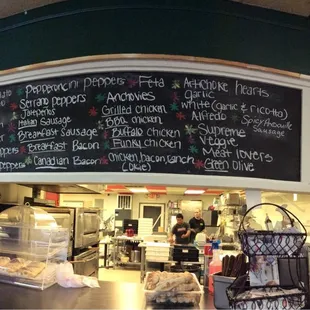 Pepperoncini peppers
Serrano peppers
Jalapeños
Italian Sausage
Breakfast Sausage
Breakfast Bacon
Canadian Bacon
Feta
Anchovies
Grilled chicken
BBQ chicken
Buffalo chicken
Funky chicken
Chicken, bacon, ranch
Artichoke hearts
garlic
white (garlic & ricotto)
Alfredo
Supreme
Veggie
Meat lovers
Green olive
Spicy Andouille
Sausage
peppers